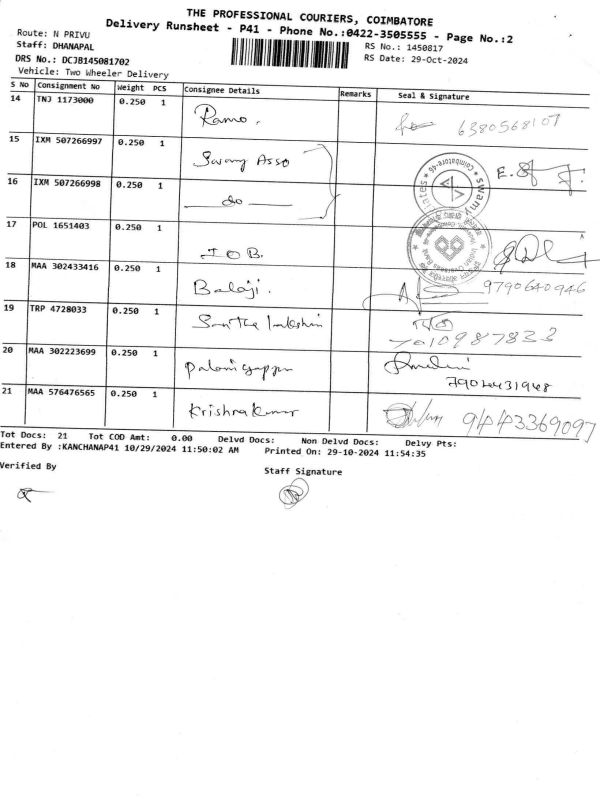 THE PROFESSIONAL COURIERS, COIMBATORE
Delivery Runsheet - P41 - Phone No.:0422-3505555 - Page No.:2
Route: N PRIVU
RS No.: 1450817
Staff: DHANAPAL
RS Date: 29-Oct-2024
DRS No.: DCJB145081702
Vehicle: Two Wheeler Delivery
S No Consignment No Weight PCS Consignee Details Remarks Seal & Signature
14 TNJ 1173000 0.250 1 Ramo. 6380568107
15 IXM 507266997 0.250 1 Swamy Asso
16 IXM 507266998 0.250 1 do
swamy
Coimbatore-46
17 POL 1651403 0.250 1 IOB.
Indian Overseas
18 MAA 302433416 0.250 1 Balaji. 9790640946
19 TRP 4728033 0.250 1 7010987833
20 MAA 302223699 0.250 1 Palaniyappan
21 MAA 576476565 0.250 1 Krishnakumar 9443369097
Tot Docs: 21 Tot COD Amt: 0.00 Delvd Docs: Non Delvd Docs: Delvy Pts:
Entered By :KANCHANAP41 10/29/2024 11:50:02 AM Printed On: 29-10-2024 11:54:35
Verified By
Staff Signature